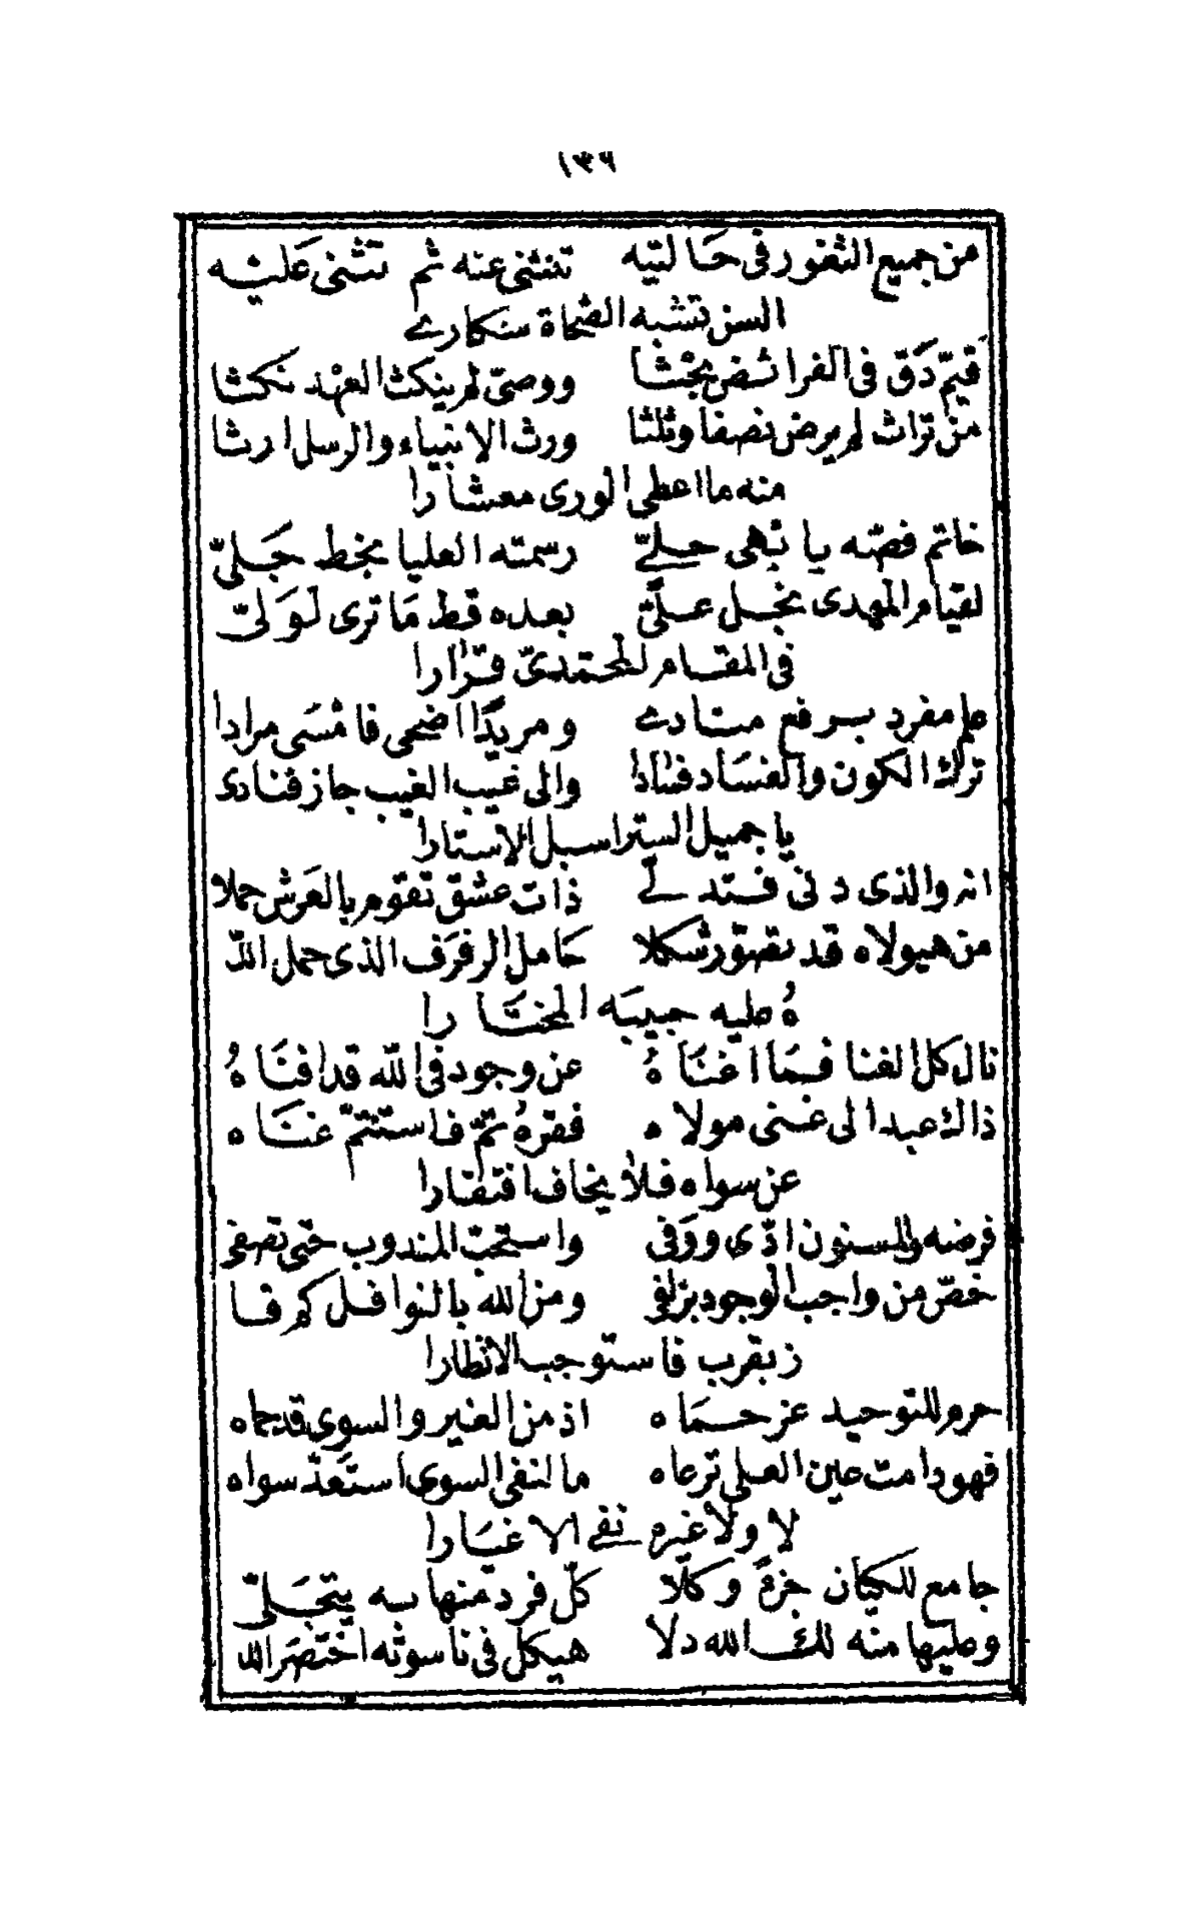 ١٣٦
من جميع الثغور فى حالتيه تنثنى عنه ثم تثنى عليه
السن تشبه الضحاة سكارى
قيم دق فى الفرائض بحثا ووصى لم ينكث العهد نكثا
من تراث لم يرض نصفا وثلثا ورث الانبياء والرسل ارثا
منه ما اعطى الورى معشارا
خاتم فصه يابهى حلى رسمته العليا بخط جلى
لقيام المهدى نجل على بعده قط ما ترى لولى
فى المقام المحمدى قرارا
علم مفرد برفع منادى ومريدا اضحى فامسى مرادا
ترك الكون والفساد فنادا والى غيب الغيب جاز فنادى
يا جميل الستر اسبل الاستارا
انه والذى دنى فتدلى ذات عشق تقوم بالعرش حملا
من هيولاه قد تصور شكلا حامل الرفرف الذى حمل الل
ه عليه حبيبه المختارا
نال كل الفنا فما اغناه عن وجود فى الله قد افناه
ذاك عبد الى غنى مولاه فقره تم فاستتم غناه
عن سواه فلا يخاف افتقارا
فرضه والمسنون ادى ووفى واستحب المندوب حتى تصفى
خص من واجب الوجود بزلفى ومن الله بالنوافل كم فا
ز بقرب فاستوجب الانظارا
حرم للتوحيد عز حماه اذ من الغير والسوى قد حماه
فهو دامت عين العلى ترعاه ما لنفى السوى استعد سواه
لا ولا غيره نفى الاغيارا
جامع للكيان جزءً وكلا كل فرد منها به يتجلى
وعليها منه لك الله دلا هيكل فى ناسوته اختصر الل